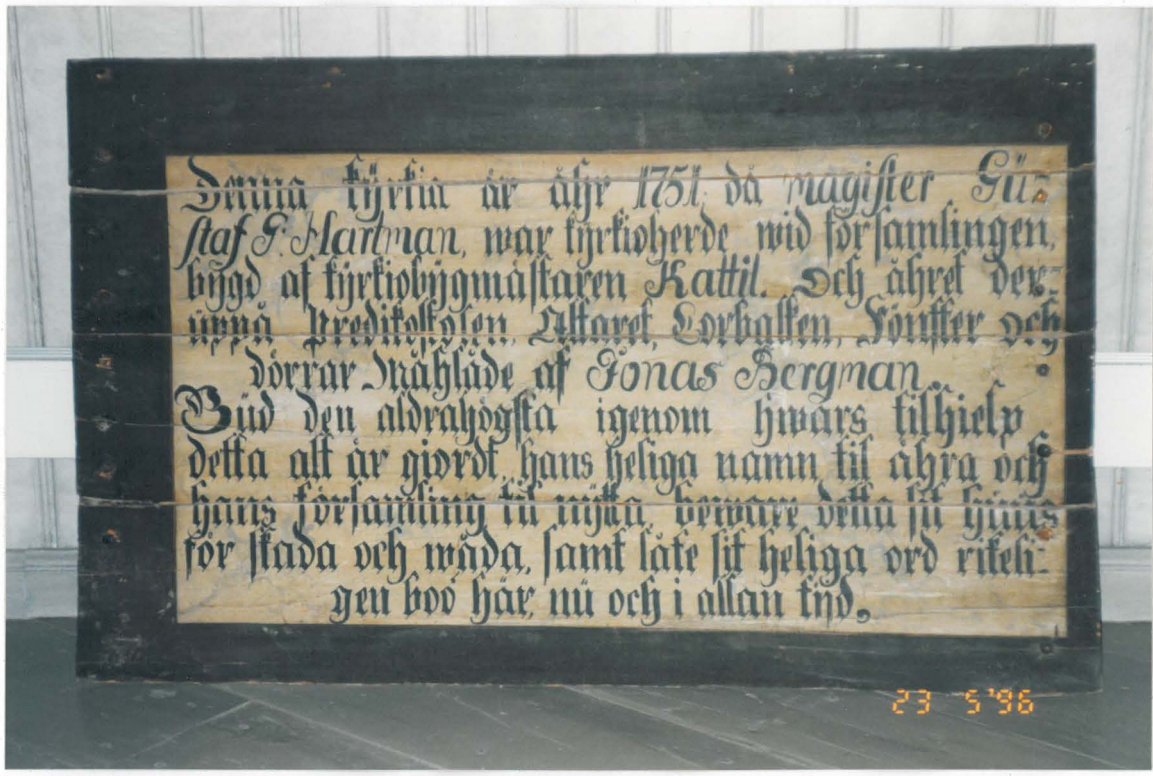 Denna kÿrkia är åhr 1751. då Magister Gü-
staf G. Hartman, war kÿrkioherde wid församlingen,
bÿgd af kÿrkiobÿgmästaren Kattil. Och åhret der-
üppå Predikostolen, Altaret, Corballken, Fönster och
dörrar Måhlade af Jonas Bergman.
Büd den aldrahögsta igenom hwars tilhielp
detta alt är giordt, hans heliga namn til ähra och
hans församling til nÿtta, beware detta sit hüüs
för skada och wåda, samt låte sit heliga ord rikeli-
gen boo här, nü och i allan tÿd.
23 5'96